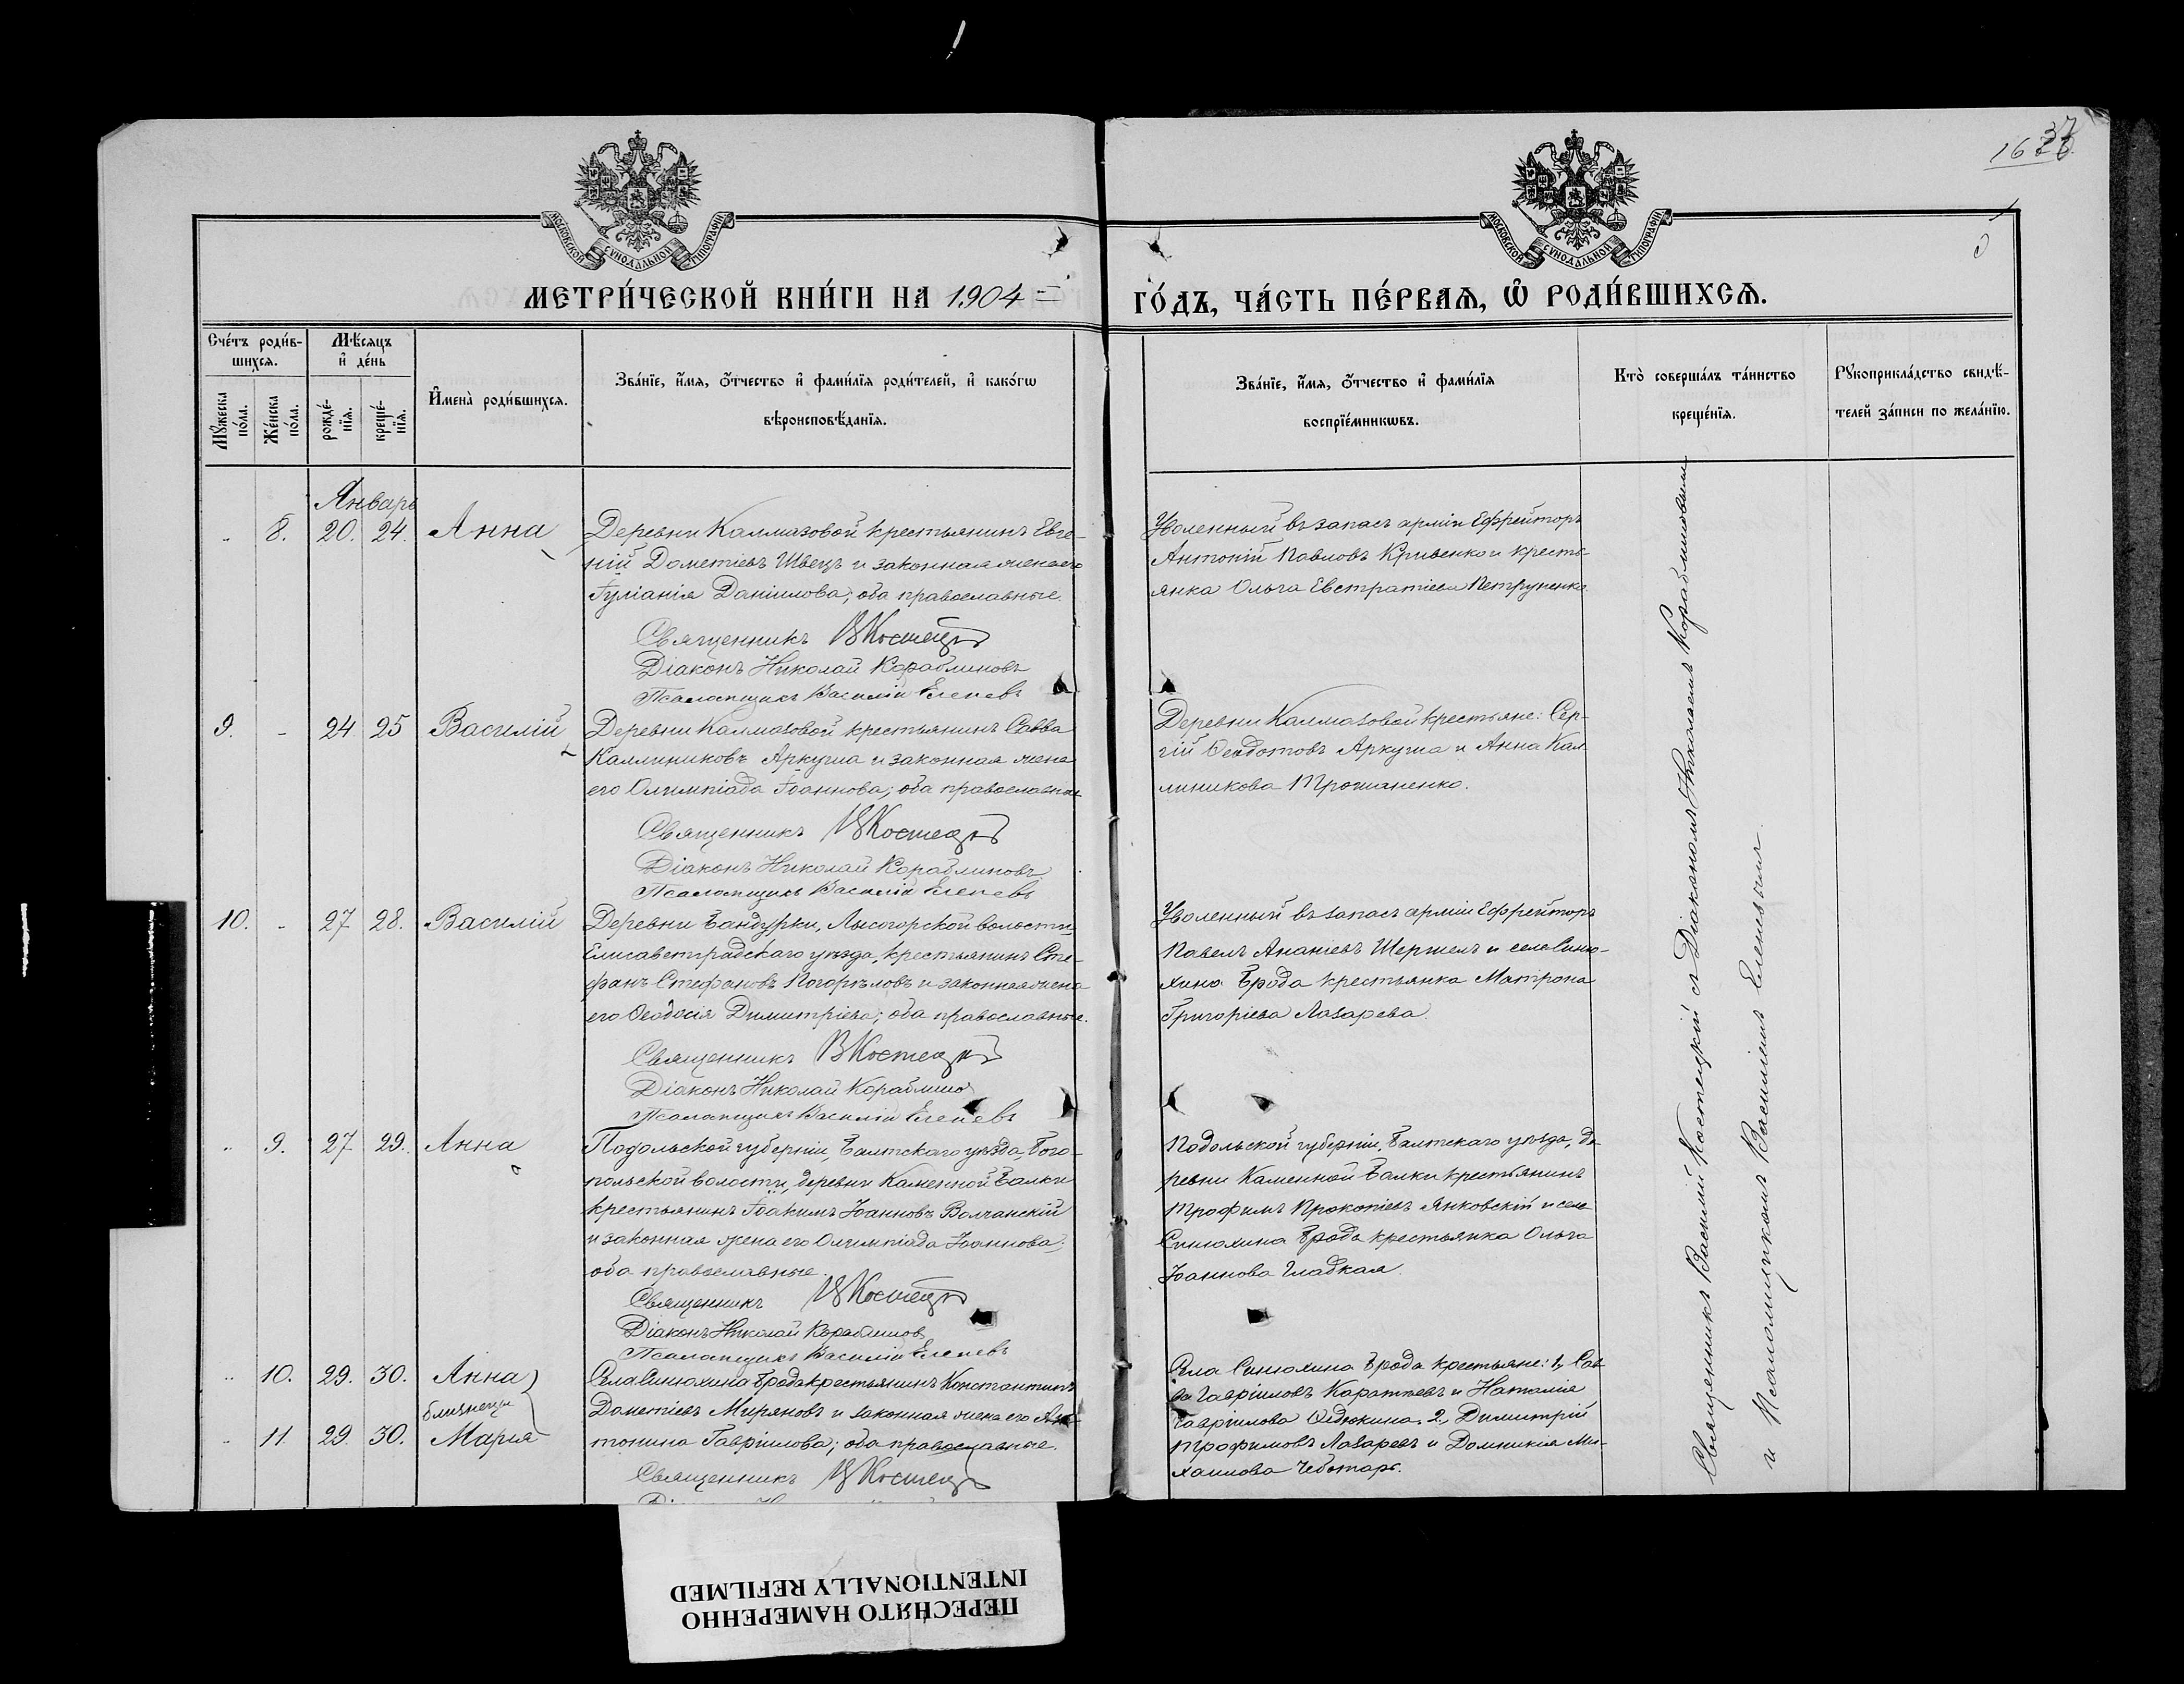 1637
МОСКОВСКОЙ СѴНОДАЛЬНОЙ ТИПОГРАФІИ
МОСКОВСКОЙ СѴНОДАЛЬНОЙ ТИПОГРАФІИ
МЕТРИ́ЧЕСКОЙ КНИ́ГИ НА 1904 ГО́ДЪ, ЧА́СТЬ ПЕ́РВАѦ, Ѽ РОДИ́ВШИХСѦ.
Сче́тъ роди́в-
шихсѧ.
Мꙋ́жеска по́ла.
Же́нска по́ла.
Мѣ́сѧцъ
и҆ де́нь
рожде́-
нїѧ.
креще́-
нїѧ.
И҆мена̀ роди́вшихсѧ.
Зва́нїе, и҆́мѧ, ѻ҆́тчество и҆ фами́лїѧ роди́телей, и҆ како́гѡ
вѣроисповѣ́данїѧ.
Зва́нїе, и҆́мѧ, ѻ҆́тчество и҆ фами́лїѧ
воспрїе́мникѡвъ.
Кто̀ соверша́лъ та́инство
креще́нїѧ.
Рꙋкоприкла́дство свидѣ́-
телей за́писи по жела́нїю.
Январь
" 8. 20. 24. Анна
Деревни Калмазовой крестьянинъ Евге-
ній Дометіевъ Швецъ и законная жена его
Іуліанія Даніилова; оба православные.
Священникъ ВКостецкій
Діаконъ Николай Кораблиновъ
Псаломщикъ Василій Еленевъ
Уволенный въ запасъ арміи Ефрейторъ
Антоній Павловъ Кривенко и кресть-
янка Ольга Евстратіева Петруненко
9. - 24 25 Василій
Деревни Калмазовой крестьянинъ Савва
Каллиниковъ Аркуша и законная жена
его Олимпіада Іоаннова; оба православные
Священникъ ВКостецкій
Діаконъ Николай Кораблиновъ
Псаломщикъ Василій Еленевъ
Деревни Калмазовой крестьяне: Сер-
гій Ѳеодотовъ Аркуша и Анна Кал
линикова Трошаненко.
10. - 27 28. Василій
Деревни Бандурки, Лысогорской волости
Елисаветградскаго уѣзда, крестьянинъ Сте-
фанъ Стефановъ Погорѣловъ и законная жена
его Ѳеодосія Димитріева; оба православные.
Священникъ ВКостецкій
Діаконъ Николай Кораблиновъ
Псаломщикъ Василій Еленевъ
Уволенный въ запасъ арміи Ефрейторъ
Павелъ Ананіевъ Шершелъ и села Синю-
хина Брода крестьянка Матрона
Григоріева Лазарева.
" 9. 27 29. Анна
Подольской губерніи, Балтскаго уѣзда, Бого-
польской волости, деревни Каменной Балки
крестьянинъ Іоакимъ Іоанновъ Волчанскій
и законная жена его Олимпіада Іоаннова;
оба православные.
Священникъ ВКостецкій
Діаконъ Николай Кораблиновъ
Псаломщикъ Василій Еленевъ
Подольской губерніи, Балтскаго уѣзда, де
ревни Каменной Балки крестьянинъ
Трофимъ Прокопіевъ Янковскій и села
Синюхина Брода крестьянка Ольга
Іоаннова Гладкая.
" 10. 29. 30. Анна
близнецы
" 11. 29. 30. Марія
Села Синюхина Брода крестьянинъ Константинъ
Дометіевъ Миряновъ и законная жена его Ан-
тонина Гавріилова; оба православные.
Священникъ ВКостецкій
Села Синюхина Брода крестьяне: 1, Сав
ва Гавріиловъ Каратѣевъ и Наталія
Гавріилова Ѳедюкина. 2, Димитрій
Трофимовъ Лазаревъ и Домникія Ми-
хаилова Чеботарь.
Священникъ Василій Костецкій съ Діакономъ Николаемъ Кораблиновымъ
и Псаломщикомъ Василіемъ Еленевымъ
ПЕРЕСНЯТО НАМЕРЕННО
INTENTIONALLY REFILMED